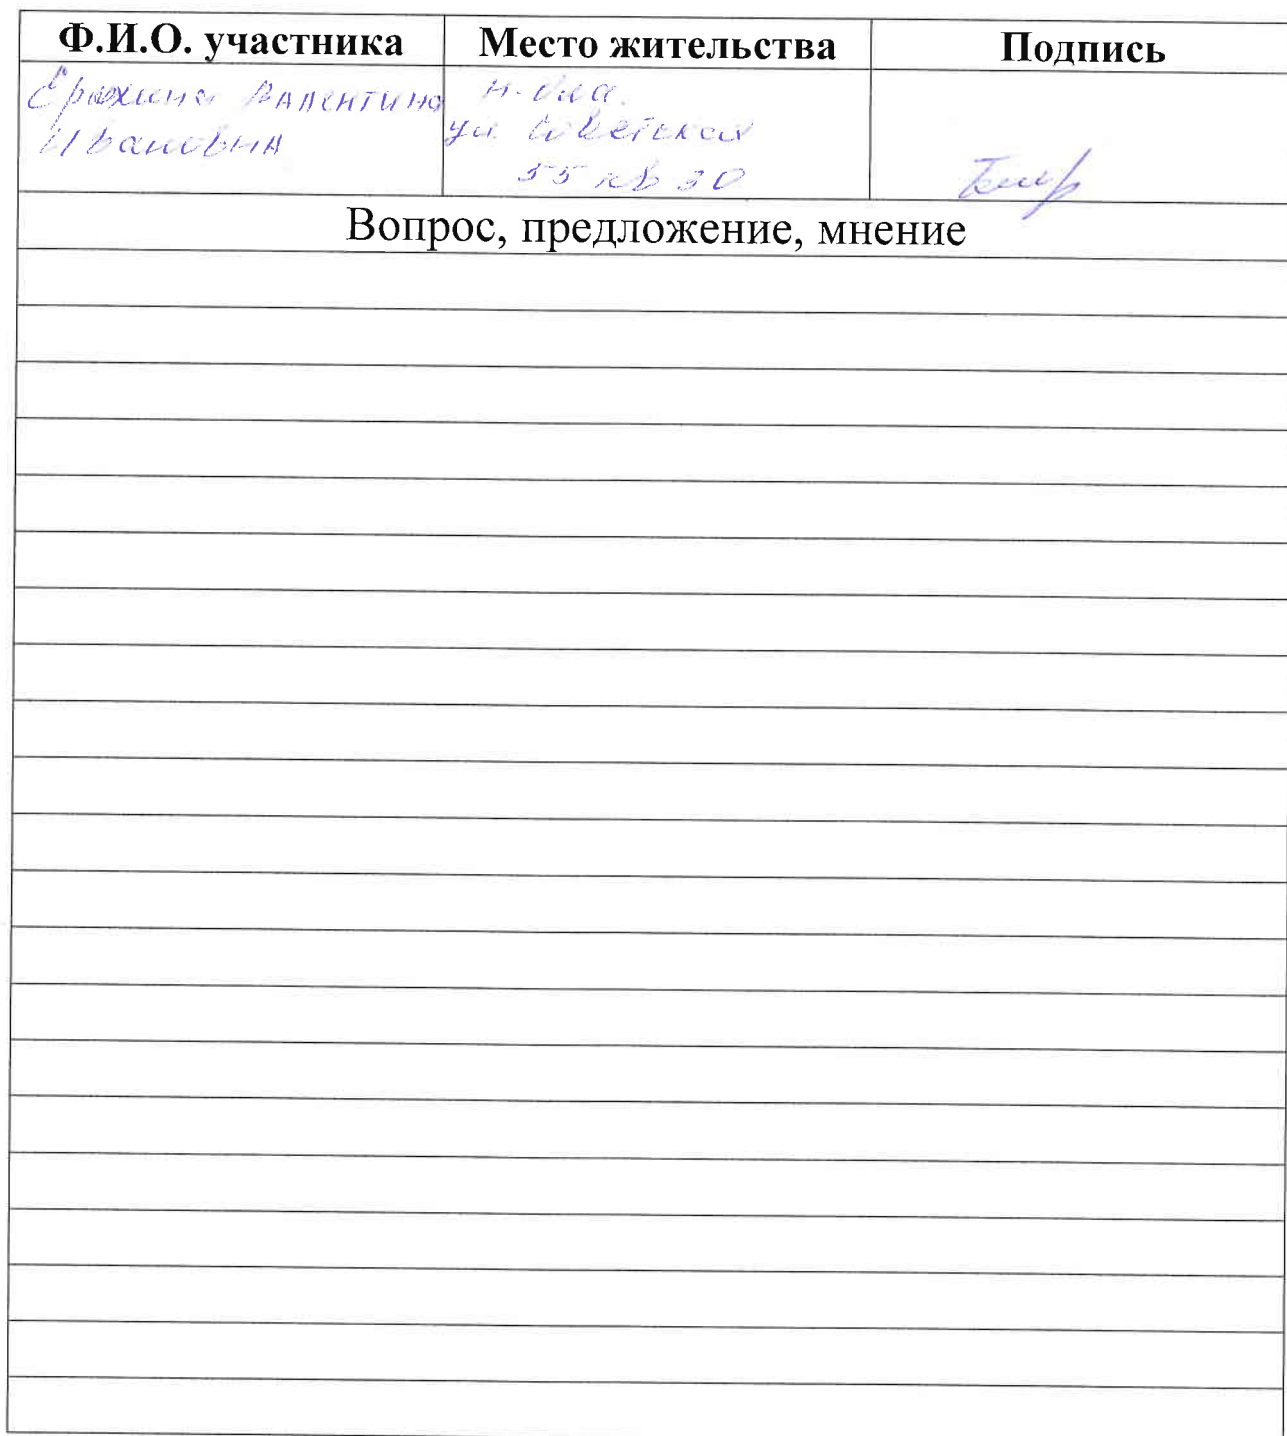 Ф.И.О. участника Место жительства Подпись
Валентина
Ивановна
ул Советская
55 кв 30
Вопрос, предложение, мнение